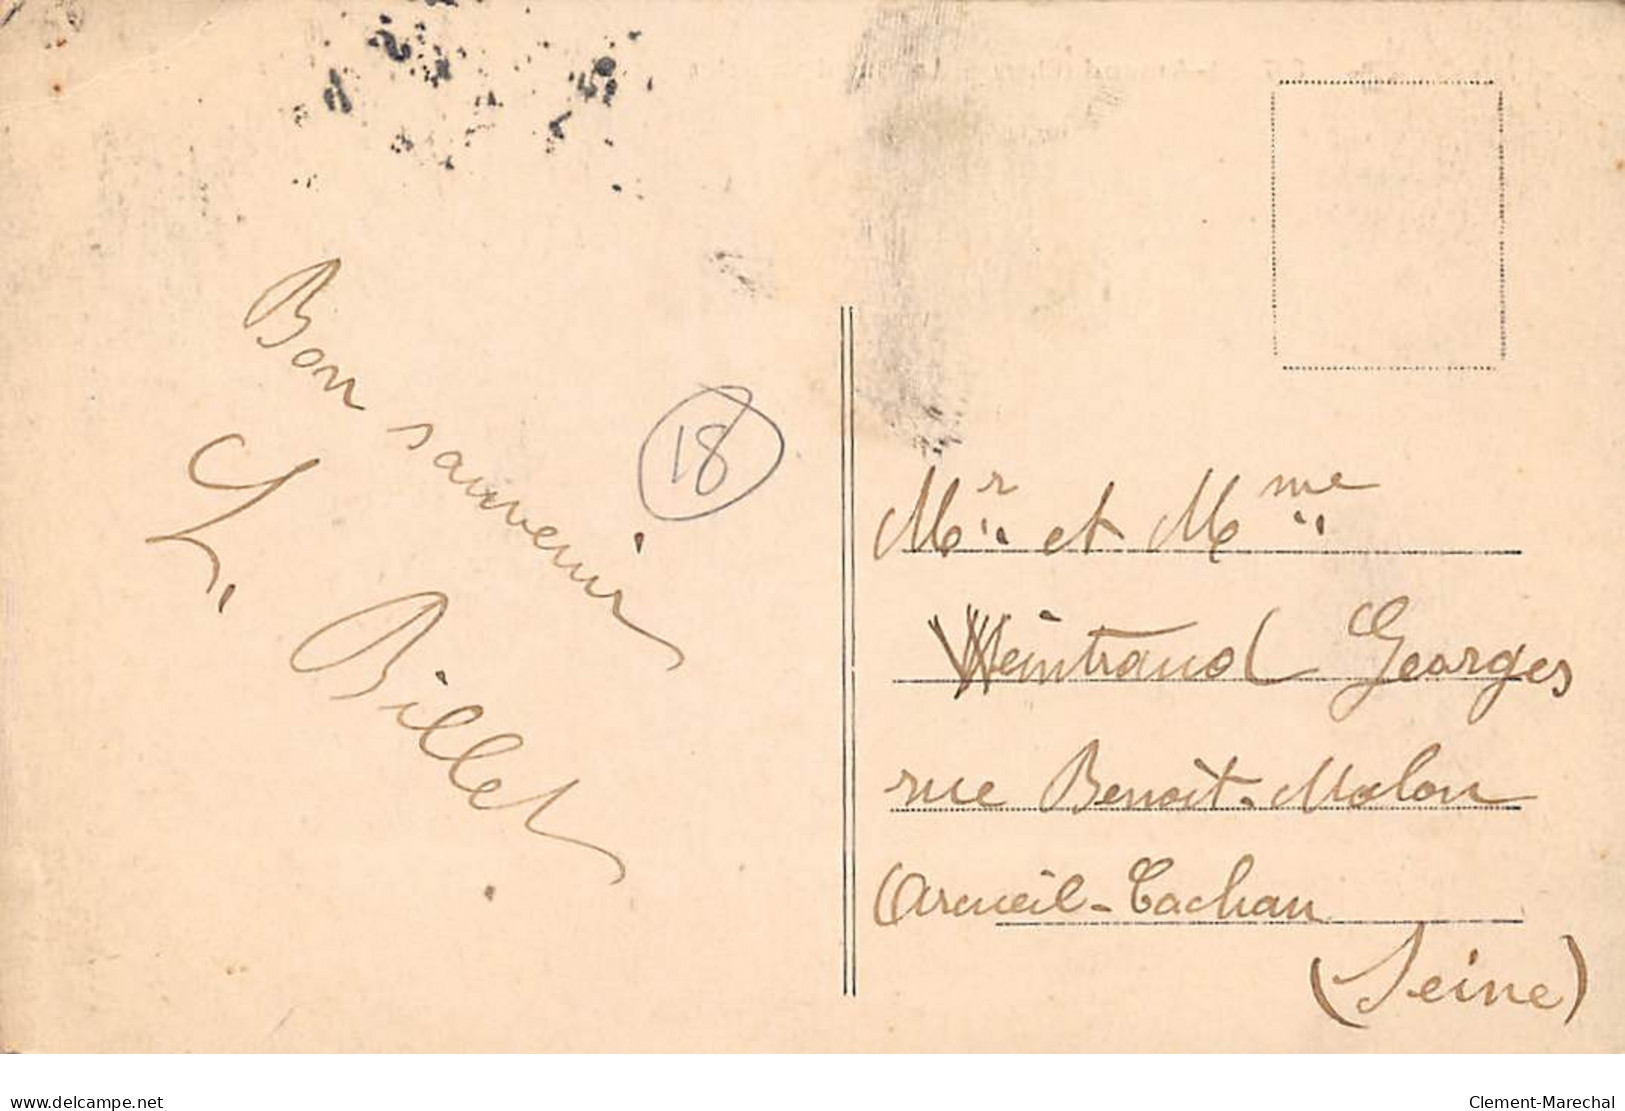 Bon souvenir
L. Billet
18
Mr et Mme
Weintraud Georges
rue Benoit-Malon
Arcueil-Cachan
(Seine)
www.delcampe.net
Clement-Marechal